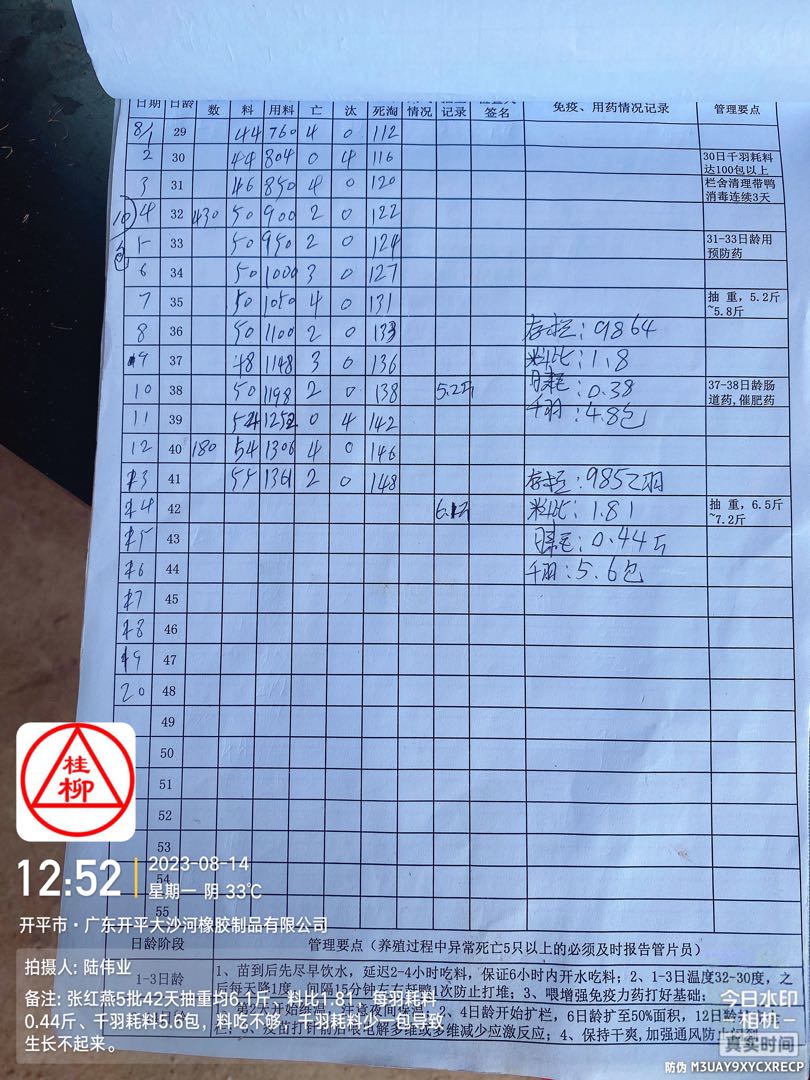 日期 日龄 数 料 用料 亡 汰 死淘 情况 记录 签名 免疫、用药情况记录 管理要点
8/1 29 44 760 4 0 112
2 30 44 804 0 4 116 30日千羽耗料达100包以上
3 31 46 850 4 0 120 栏舍清理带鸭消毒连续3天
4 32 430 50 900 2 0 122
5 33 50 950 2 0 124 31-33日龄用预防药
6 34 50 1000 3 0 127
7 35 50 1050 4 0 131 抽重,5.2斤~5.8斤
8 36 50 1100 2 0 133 存栏:9864
9 37 48 1148 3 0 136 料比:1.8
10 38 50 1198 2 0 138 5.2斤 日耗:0.38 37-38日龄肠道药,催肥药
11 39 54 1252 0 4 142 千羽:4.8包
12 40 180 54 1306 4 0 146
13 41 55 1361 2 0 148 存栏:9852羽
14 42 6.1斤 料比:1.81 抽重,6.5斤~7.2斤
15 43 日耗:0.44斤
16 44 千羽:5.6包
17 45
18 46
19 47
20 48
49
50
51
52
53
54
55
日龄阶段 管理要点(养殖过程中异常死亡5只以上的必须及时报告管片员)
1-3日龄 1、苗到后先尽早饮水,延迟2-4小时吃料,保证6小时内开水吃料;2、1-3日温度32-30度,之
后每天降1度,间隔15分钟左右赶鸭1次防止打堆;3、喂增强免疫力药打好基础;
2、4日龄开始扩栏,6日龄扩至50%面积,12日龄
4、保持干爽,加强通风防止
桂
柳
12:52
2023-08-14
星期一 阴 33℃
开平市·广东开平大沙河橡胶制品有限公司
拍摄人: 陆伟业
备注: 张红燕5批42天抽重均6.1斤、料比1.81,每羽耗料
0.44斤、千羽耗料5.6包,料吃不够,千羽耗料少一包导致
生长不起来。
今日水印
相机
真实时间
防伪 M3UAY9XYCXRECP